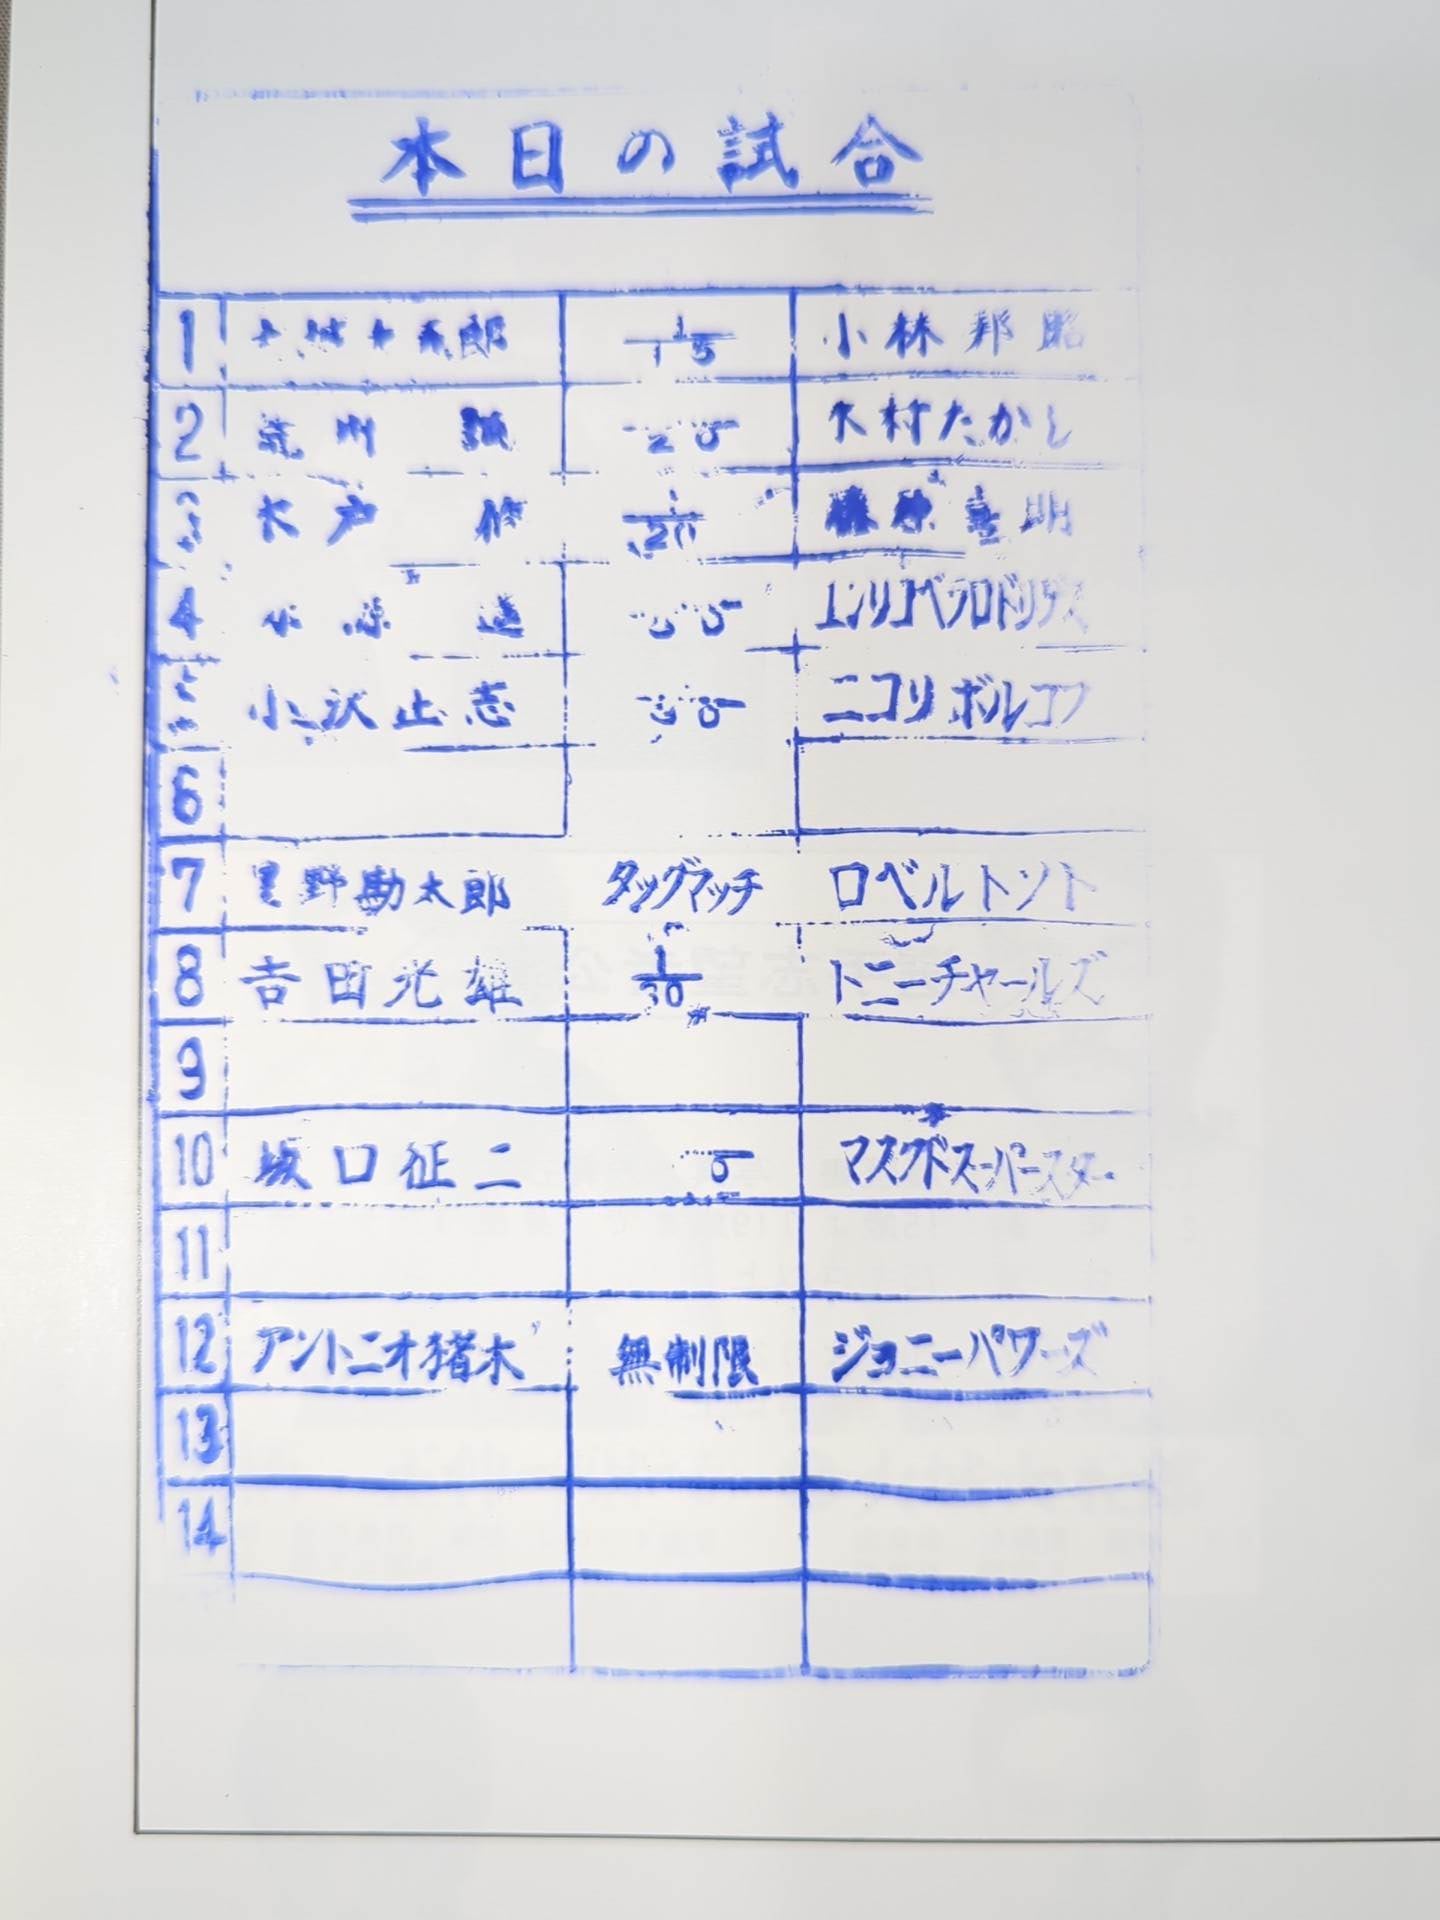 本日の試合
1 郎 1/15 小林邦昭
2 荒川 20 木村たかし
3 木戸修 1/20 藤原喜明
4 エンリコベラロドリゲス
5 小沢正志 ニコリボルコフ
6
7 星野勘太郎 タッグマッチ ロベルトソト
8 吉田光雄 1/30 トニーチャールズ
9
10 坂口征二 マスクドスーパースター
11
12 アントニオ猪木 無制限 ジョニーパワーズ
13
14